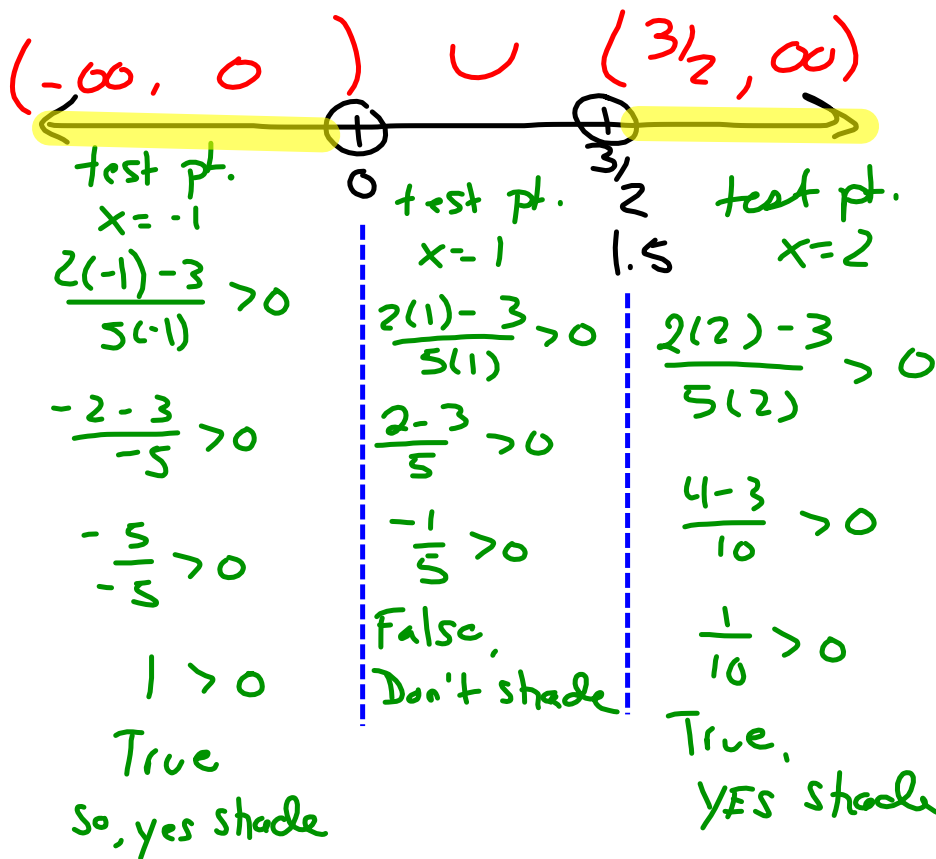 (-∞, 0) ∪ (3/2, ∞)
0
3/2
1.5
test pt.
x = -1
2(-1) - 3 / 5(-1) > 0
-2 - 3 / -5 > 0
-5 / -5 > 0
1 > 0
True
so, yes shade
test pt.
x = 1
2(1) - 3 / 5(1) > 0
2 - 3 / 5 > 0
-1 / 5 > 0
False,
Don't shade
test pt.
x = 2
2(2) - 3 / 5(2) > 0
4 - 3 / 10 > 0
1 / 10 > 0
True,
YES shade